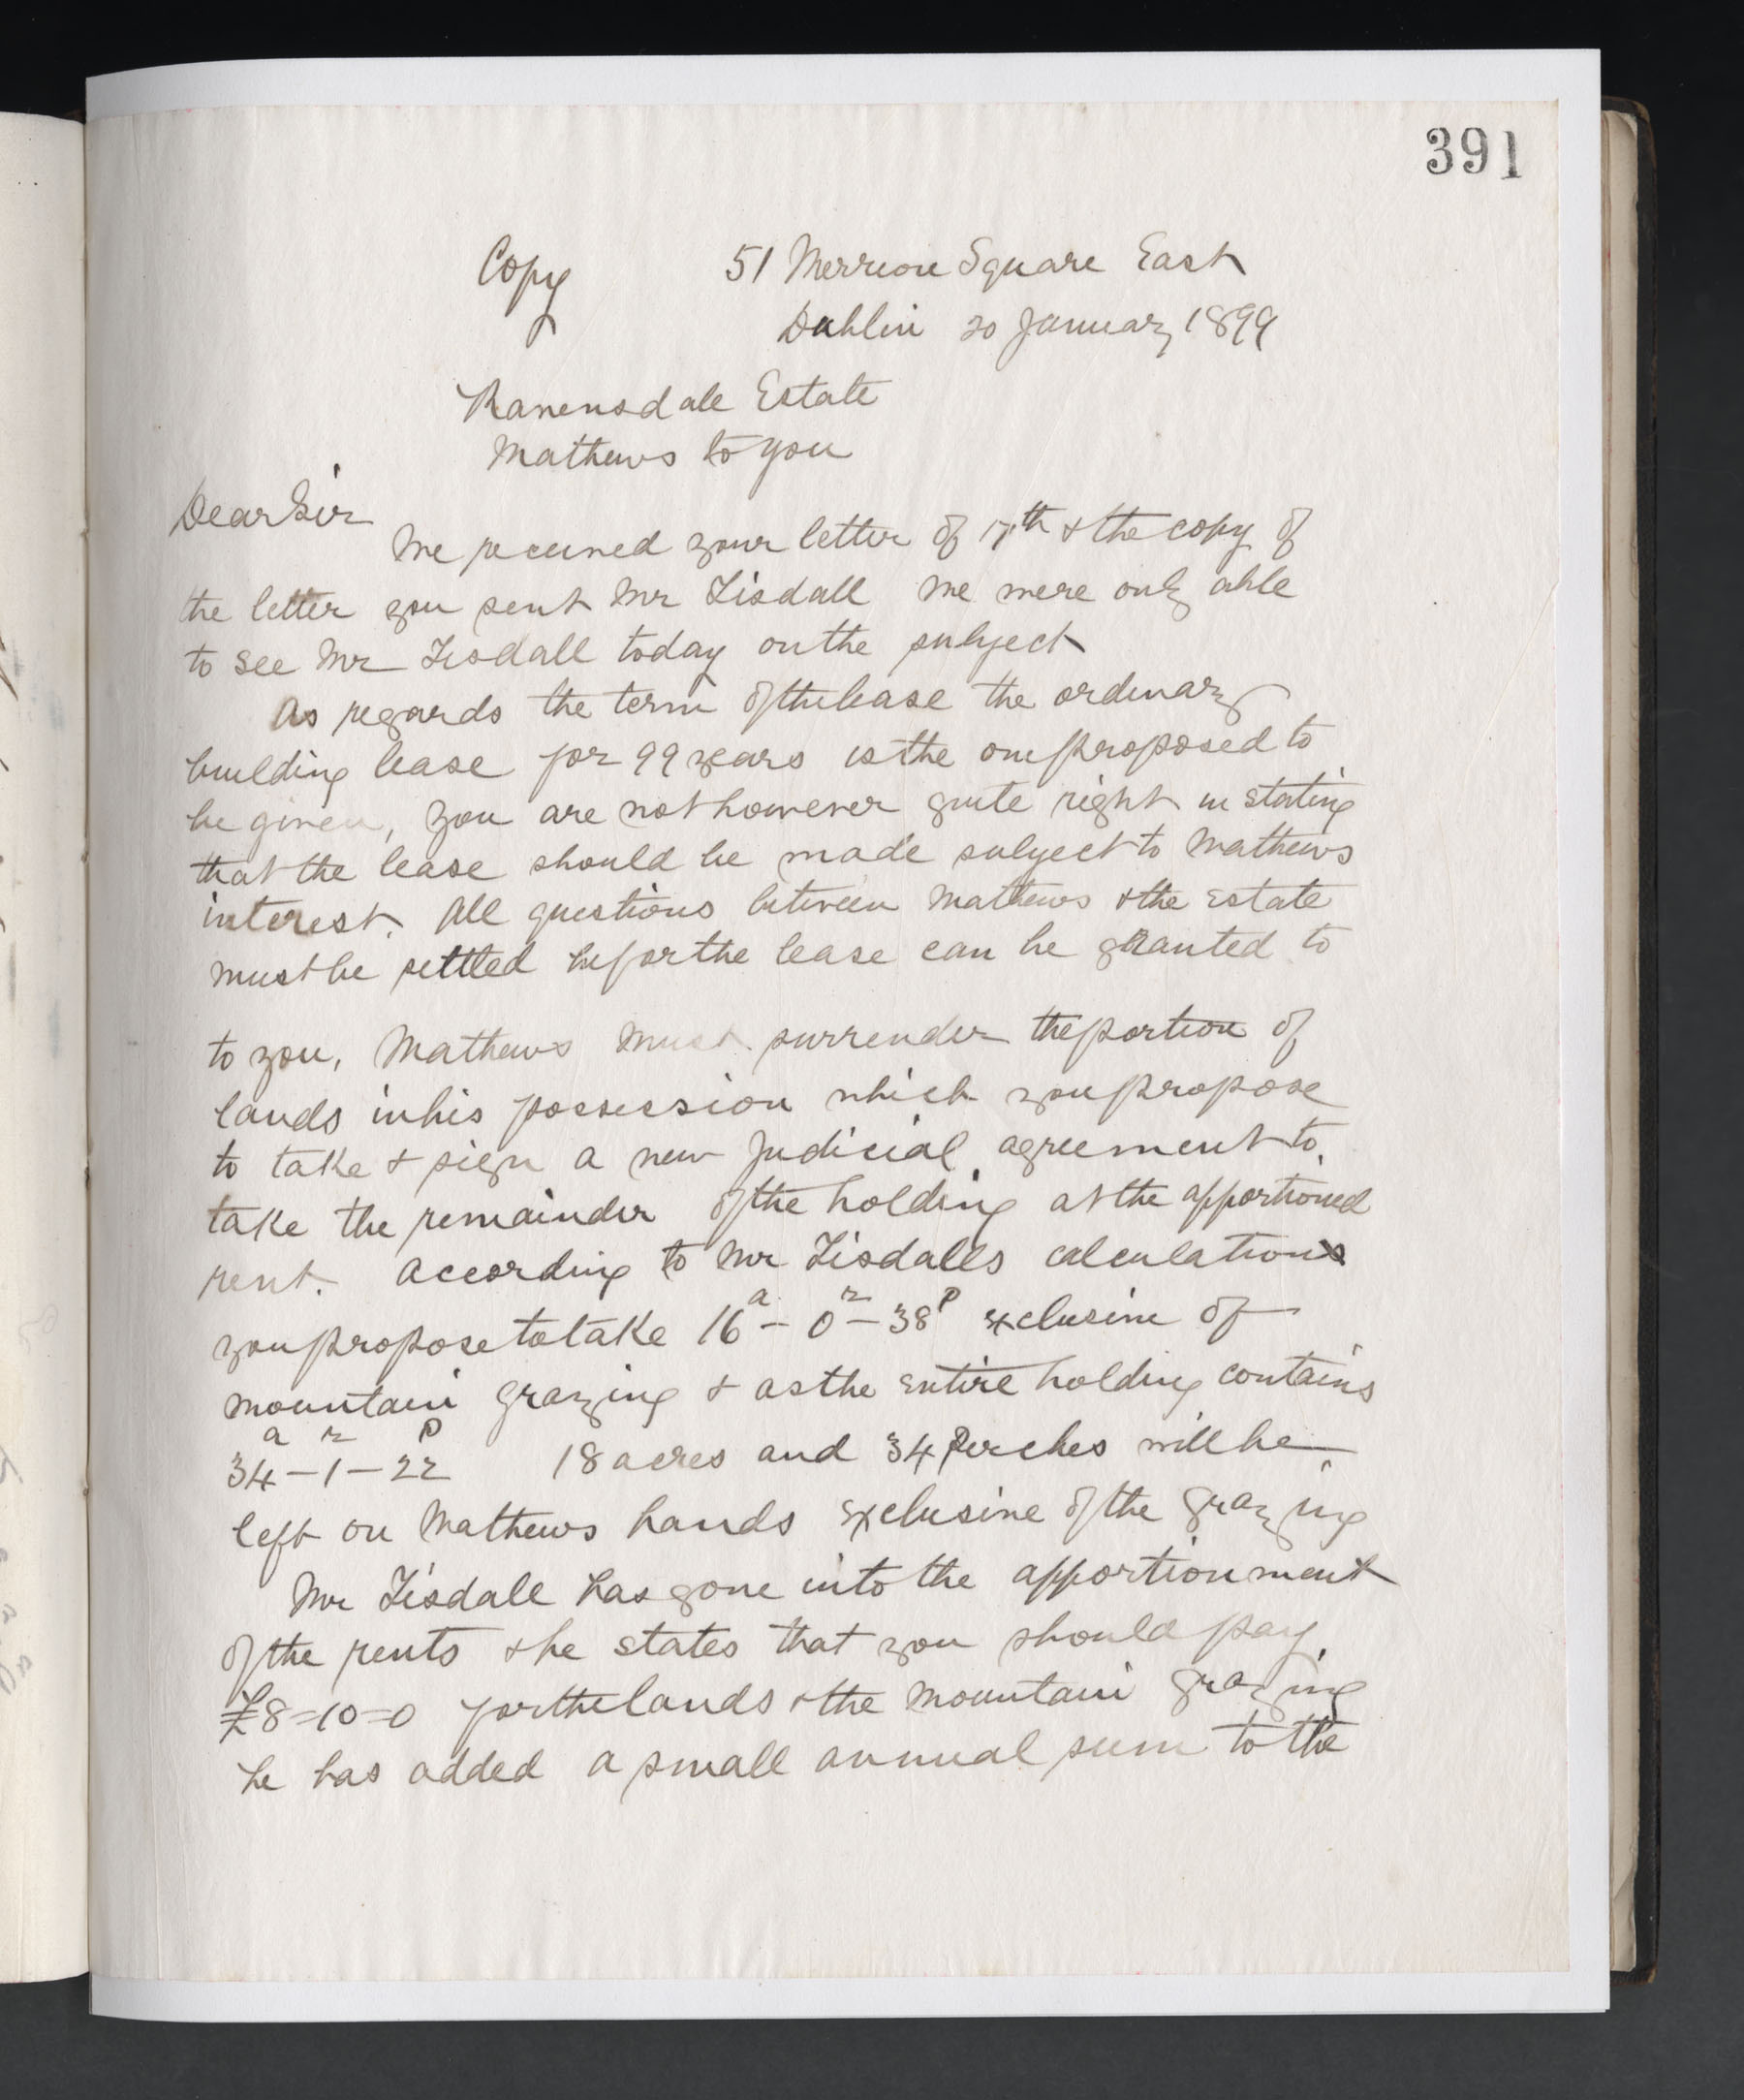 391
Copy 51 Merrion Square East
Dublin 20 January 1899
Ravensdale Estate
Mathews to you
Dear Sir
We received your letter of 17th & the copy of
the letter you sent Mr Tisdall We were only able
to see Mr Tisdall today on the subject
As regards the term of the lease the ordinary
building lease for 99 years is the one proposed to
be given, you are not however quite right in stating
that the lease should be made subject to Mathews
interest. All questions between Mathews & the Estate
must be settled before the lease can be granted to
to you, Mathews must surrender the portion of
lands in his possession which you propose
to take & sign a new Judicial agreement to
take the remainder of the holding at the apportioned
rent. According to Mr Tisdalls calculations
you propose to take 16a - 0r - 38p exclusive of
mountain grazing & as the entire holding contains
34a - 1r - 22p 18 acres and 34 Perches will be
left on Mathews hands exclusive of the grazing
Mr Tisdall has gone into the apportionment
of the rents & he states that you should pay
£8=10=0 for the lands & the mountain grazing
he has added a small annual sum to the